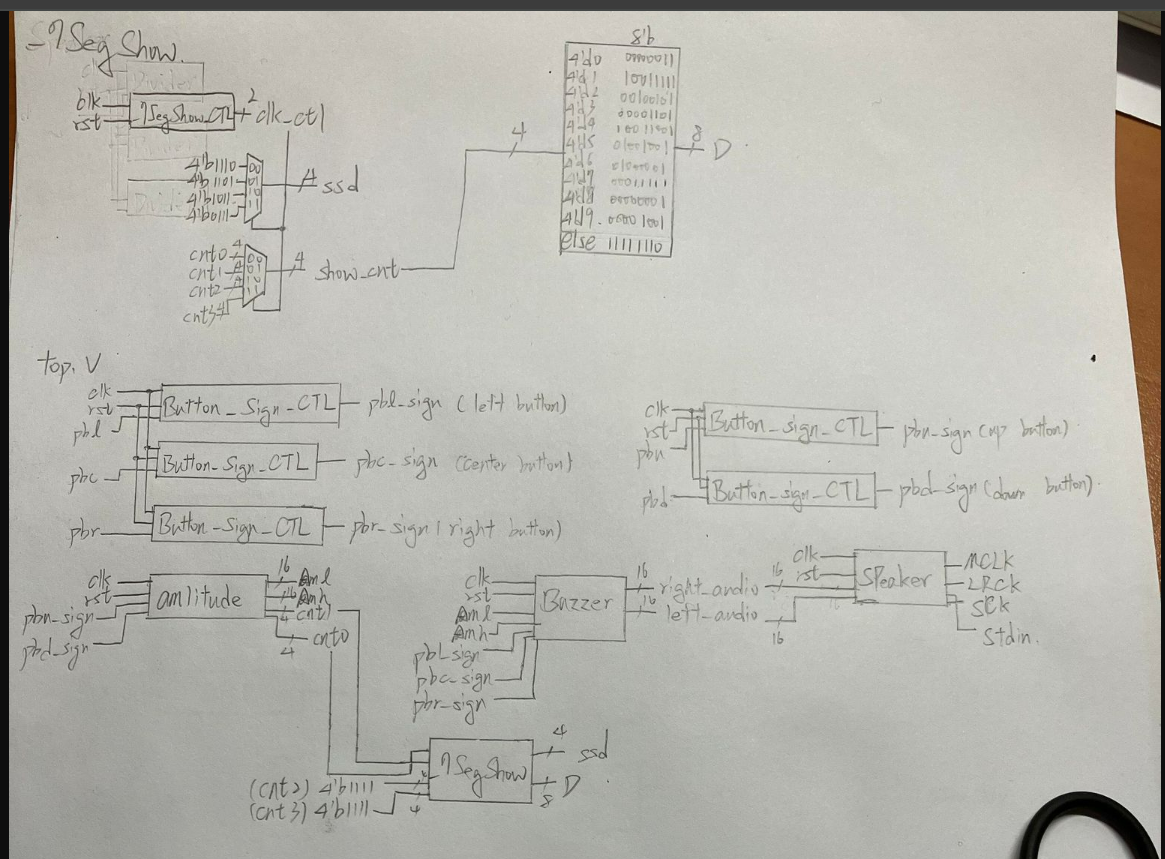 _7SegShow.
clk
rst
_7SegShow_CTL
2
clk_ctl
4'b1110
4'b1101
4'b1011
4'b0111
00
01
10
11
4
ssd
cnt0 4
cnt1 4
cnt2 4
cnt3 4
00
01
10
11
4
show_cnt
4
8'b
4'd0 00000011
4'd1 10011111
4'd2 00100101
4'd3 00001101
4'd4 10011001
4'd5 01001001
4'd6 01000001
4'd7 00011111
4'd8 00000001
4'd9 00001001
else 11111110
8
D
top.V
clk
rst
pbl
Button_Sign_CTL
pbl_sign (left button)
pbc
Button_Sign_CTL
pbc_sign (center button)
pbr
Button_Sign_CTL
pbr_sign (right button)
clk
rst
pbu
Button_sign_CTL
pbu_sign (up button)
pbd
Button_sign_CTL
pbd_sign (down button)
clk
rst
pbu_sign
pbd_sign
amlitude
16 Aml
16 Amh
4 cnt1
4 cnt0
clk
rst
Aml
Amh
pbl_sign
pbc_sign
pbr_sign
Buzzer
16 right_audio 16
16 left_audio 16
clk
rst
Speaker
MCLK
LRCK
SCK
Stdin.
(cnt2) 4'b1111 4
(cnt3) 4'b1111 4
7SegShow
4 ssd
8 D